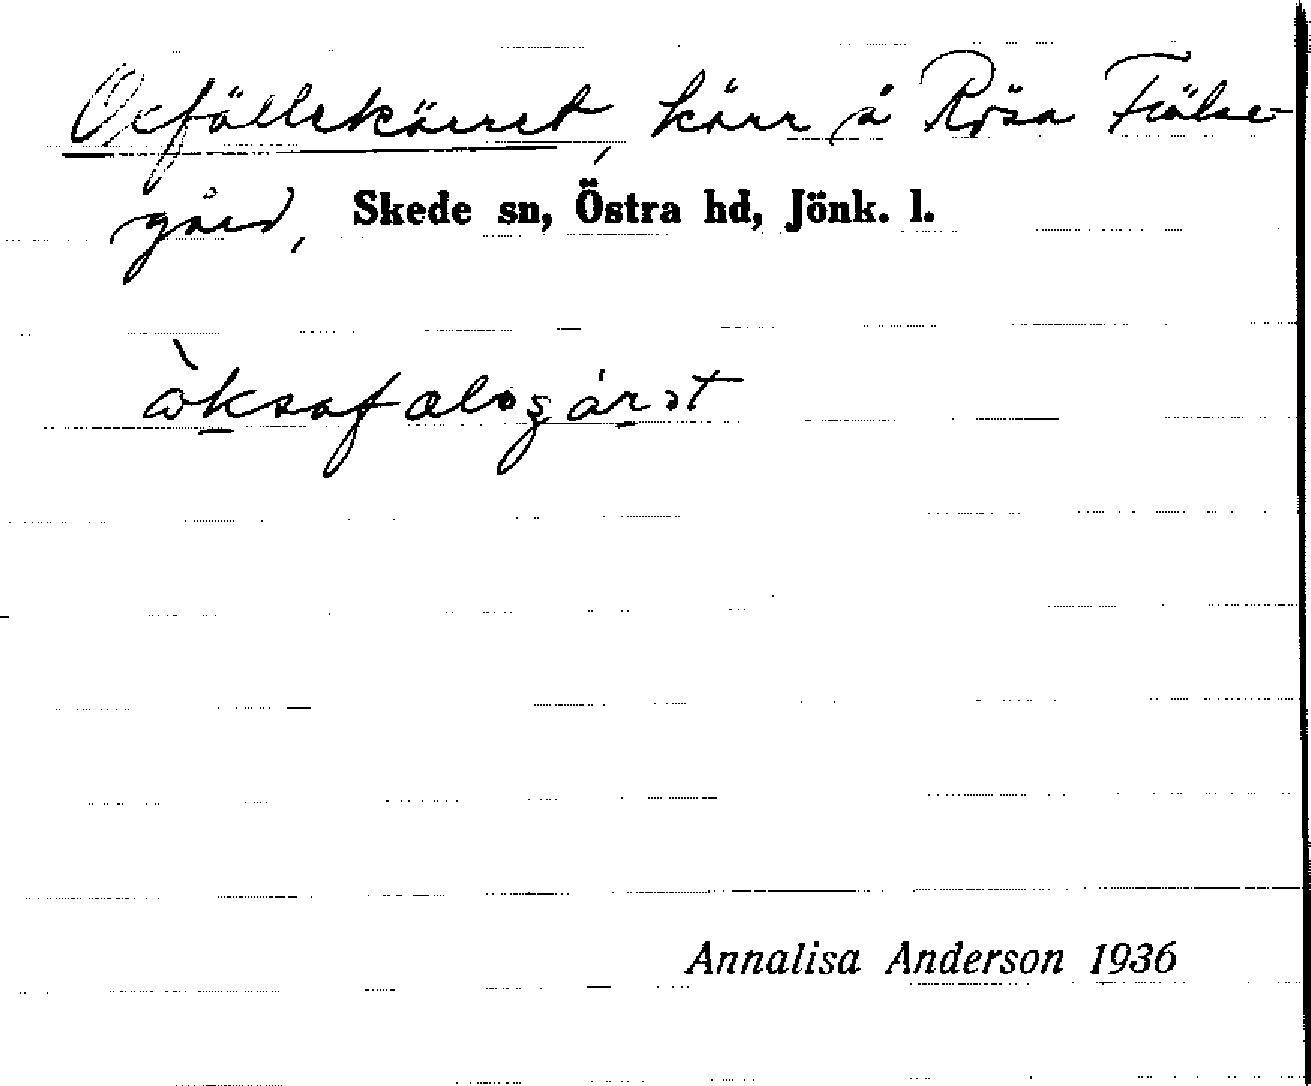 Oxfällekärret, kärr å Rösa Frälse-
gård, Skede sn, Östra hd, Jönk. l.
Annalisa Anderson 1936